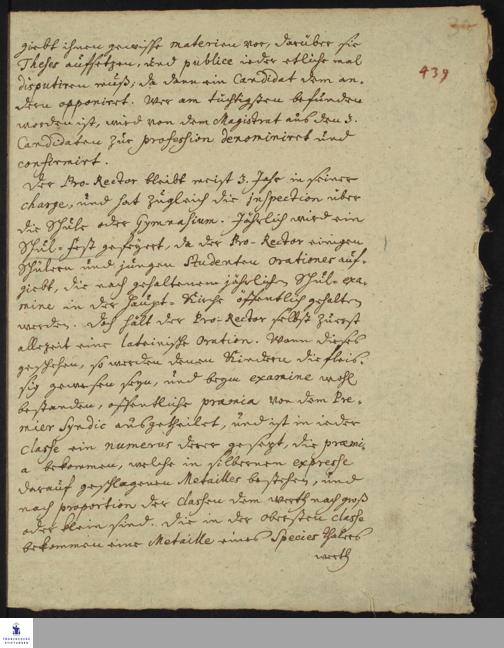 439
giebt ihnen gewisse materien vor, darüber sie
Theses auffsetzen, und publice ieder etliche mal
disputiren muß; da dann ein Candidat dem an-
dern opponiret. Wer am tüchtigsten befunden
worden ist, wird von dem Magistrat aus den 3.
Candidaten zur profession denominiret und
confirmirt.
Der Pro-Rector bleibt meist 3. Jahr in seiner
charge, und hat zugleich die inspection über
die Schule oder Gymnasium. Jährlich wird ein
Schul-fest gefeyert, da der Pro-Rector einigen
Schülern und jungen Studenten orationes auf-
giebt, die nach gehaltenem jährlichen Schul-exa-
mine in der Haupt-Kirche öffentlich gehalten
werden. Doch hält der Pro-Rector selbst zuerst
allezeit eine lateinische Oration. Wann dieses
geschehen, so werden denen Kindern die fleis-
sig gewesen seyn, und beym examine wohl
bestanden, offentliche præmia von dem Pre-
mier Syndic ausgetheilet, und ist in ieder
Classe ein numerus derer gesezt, die præmi-
a bekommen, welche in silbernen expresse
darauf geschlagenen Metailles bestehen, und
nach proportion der Classen dem werth nach groß
oder klein sind. Die in der obersten Classe
bekommen eine Metaille eines Species thalers
werth
FRANCKESCHE
STIFTUNGEN